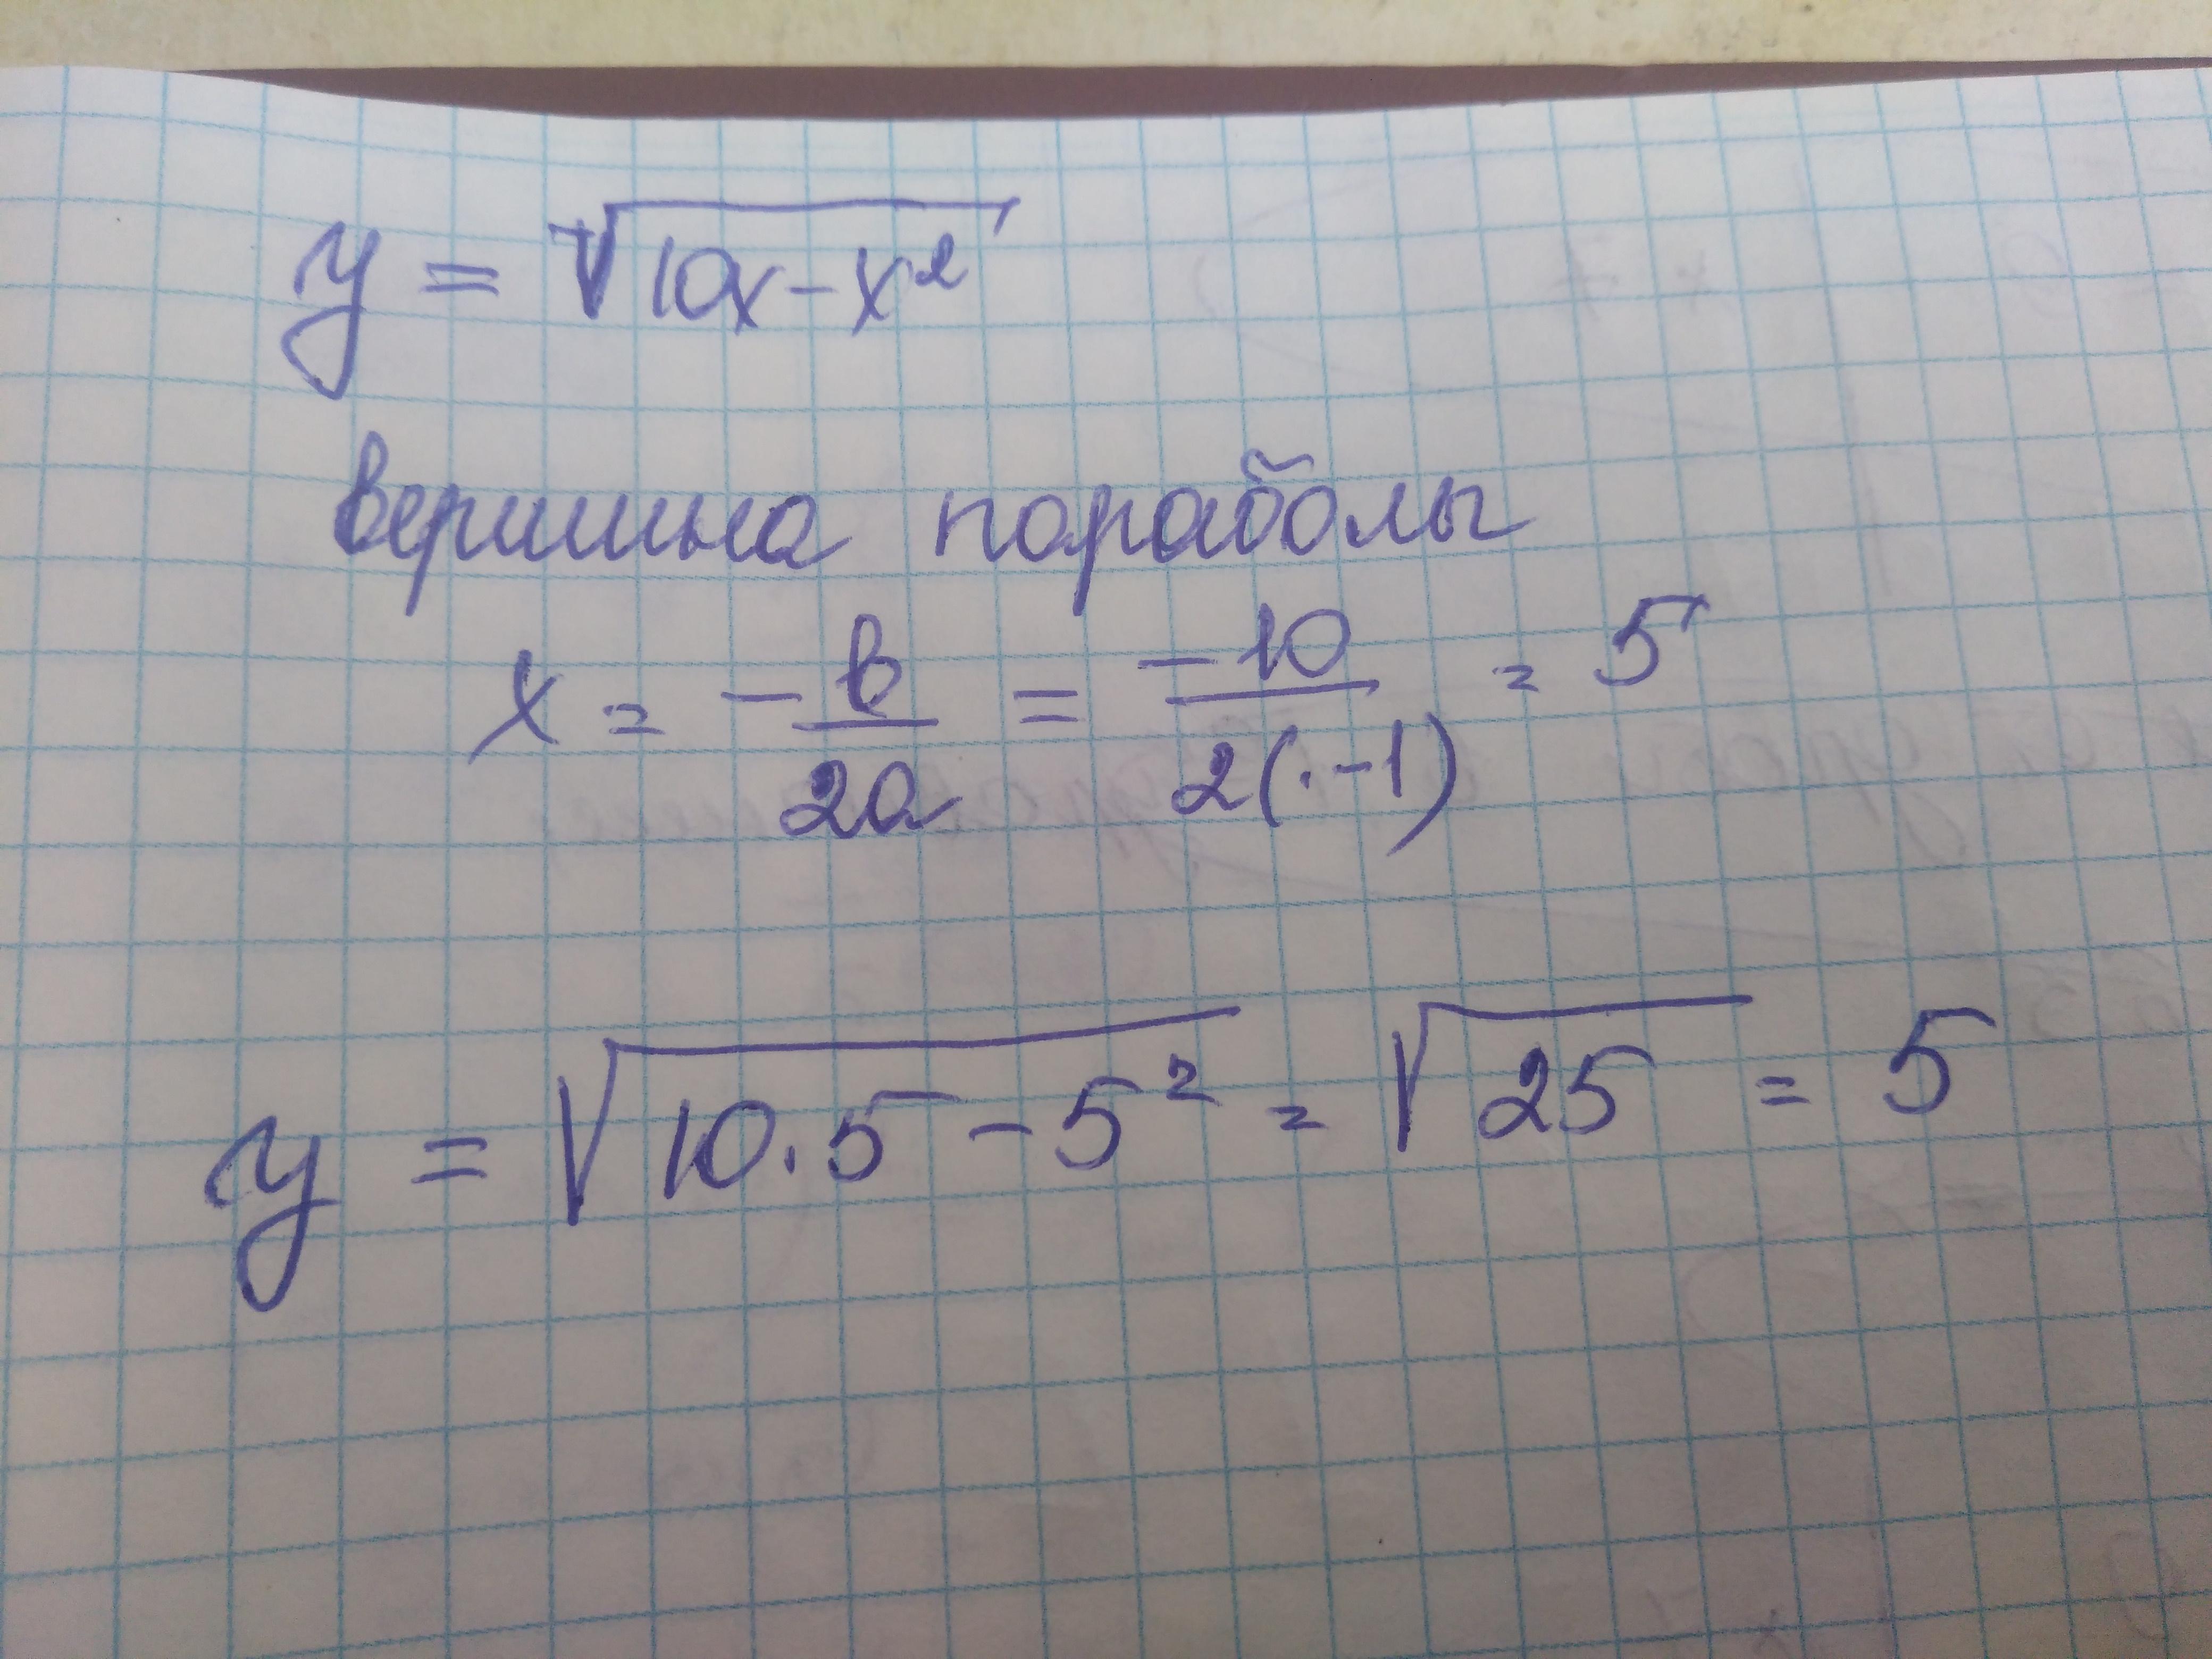 y = √10x - x²
вершина пораболы
x = - в/2а = -10/2(·-1) = 5
y = √10·5 - 5² = √25 = 5